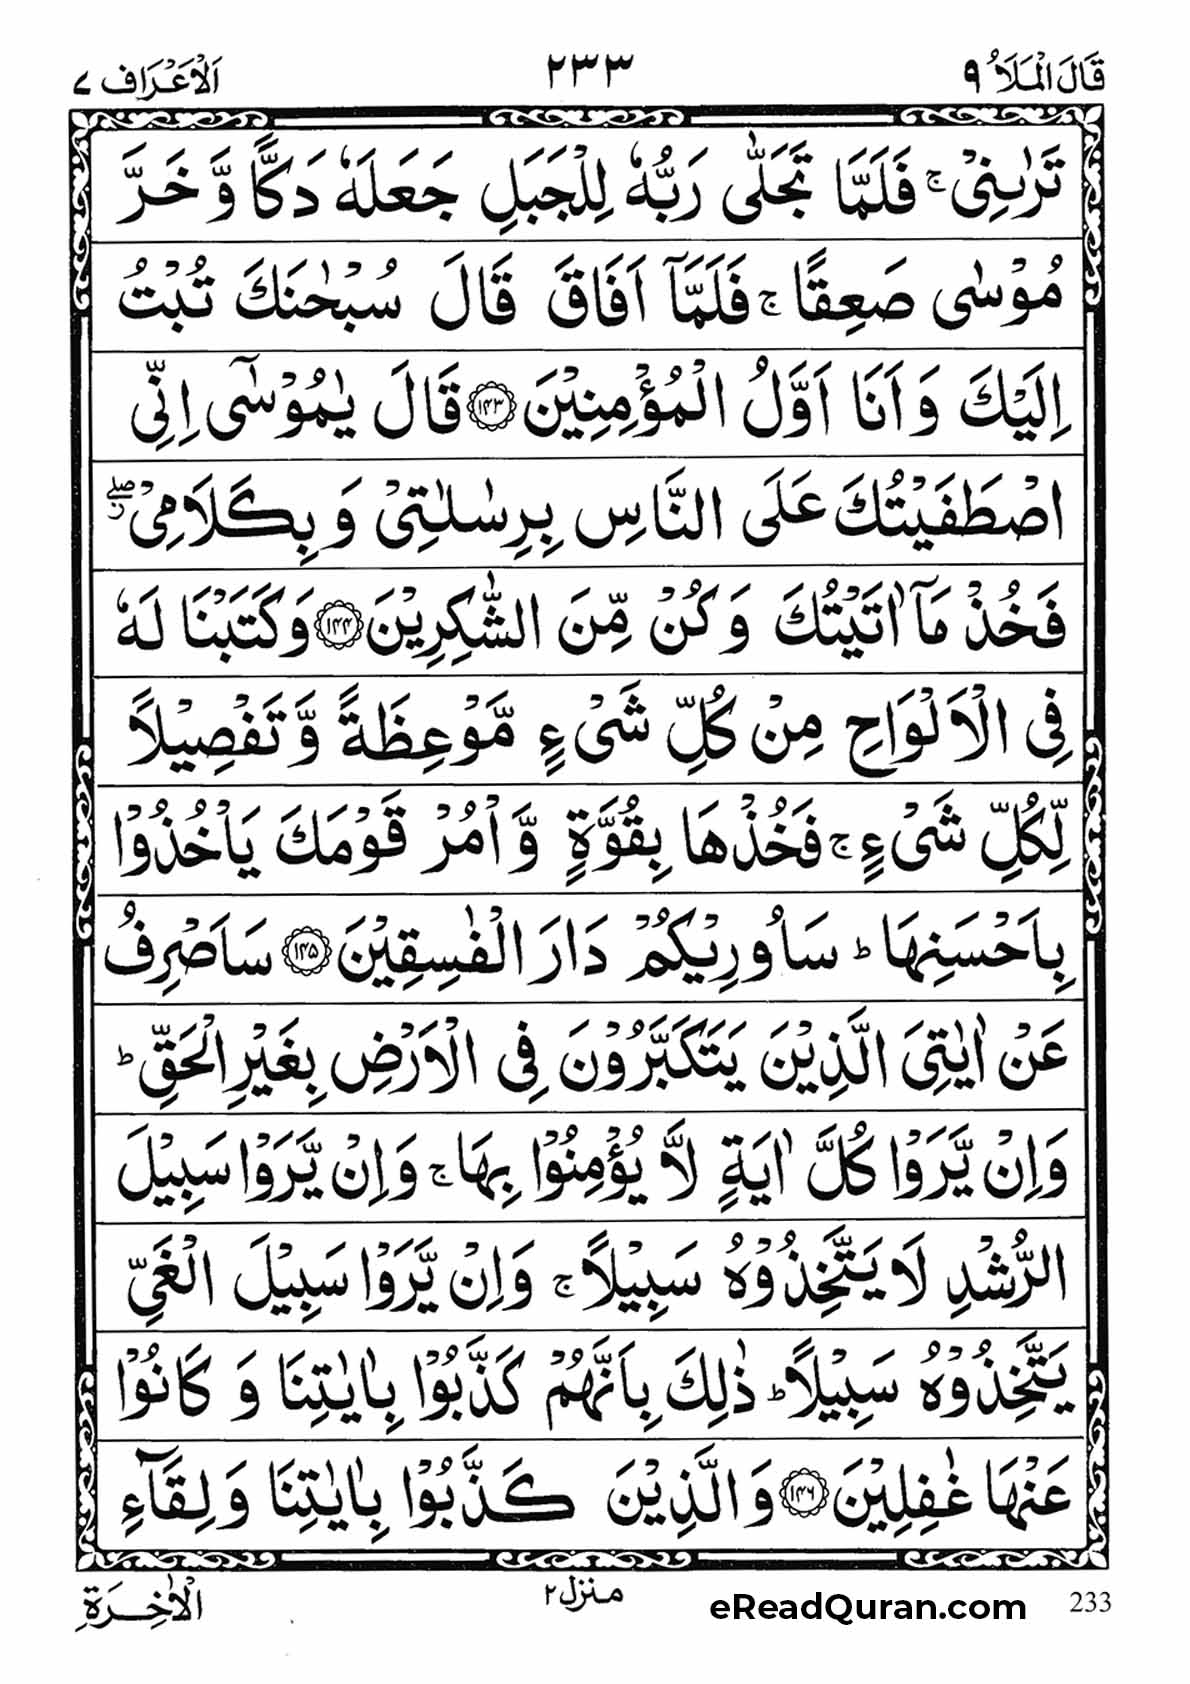 قَالَ الْمَلَاُ ٩
٢٣٣
اَلْاَعْرَاف ٧
تَرٰىنِیْ ۚ فَلَمَّا تَجَلّٰی رَبُّهٗ لِلْجَبَلِ جَعَلَهٗ دَکًّا وَّ خَرَّ
مُوْسٰی صَعِقًا ۚ فَلَمَّاۤ اَفَاقَ قَالَ سُبْحٰنَكَ تُبْتُ
اِلَیْكَ وَ اَنَا اَوَّلُ الْمُؤْمِنِیْنَ ﴿۱۴۳﴾ قَالَ یٰمُوْسٰۤی اِنِّی
اصْطَفَیْتُكَ عَلَی النَّاسِ بِرِسٰلٰتِیْ وَ بِكَلَامِیْ ۖ٘
فَخُذْ مَاۤ اٰتَیْتُكَ وَ كُنْ مِّنَ الشّٰكِرِیْنَ ﴿۱۴۴﴾ وَ كَتَبْنَا لَهٗ
فِی الْاَلْوَاحِ مِنْ كُلِّ شَیْءٍ مَّوْعِظَةً وَّ تَفْصِیْلًا
لِّكُلِّ شَیْءٍ ۚ فَخُذْهَا بِقُوَّةٍ وَّ اْمُرْ قَوْمَكَ یَاْخُذُوْا
بِاَحْسَنِهَا ؕ سَاُورِیْكُمْ دَارَ الْفٰسِقِیْنَ ﴿۱۴۵﴾ سَاَصْرِفُ
عَنْ اٰیٰتِیَ الَّذِیْنَ یَتَكَبَّرُوْنَ فِی الْاَرْضِ بِغَیْرِ الْحَقِّ ؕ
وَ اِنْ یَّرَوْا كُلَّ اٰیَةٍ لَّا یُؤْمِنُوْا بِهَا ۚ وَ اِنْ یَّرَوْا سَبِیْلَ
الرُّشْدِ لَا یَتَّخِذُوْهُ سَبِیْلًا ۚ وَ اِنْ یَّرَوْا سَبِیْلَ الْغَیِّ
یَتَّخِذُوْهُ سَبِیْلًا ؕ ذٰلِكَ بِاَنَّهُمْ كَذَّبُوْا بِاٰیٰتِنَا وَ كَانُوْا
عَنْهَا غٰفِلِیْنَ ﴿۱۴۶﴾ وَ الَّذِیْنَ كَذَّبُوْا بِاٰیٰتِنَا وَ لِقَآءِ
الْاٰخِرَةِ
منزل ٢
eReadQuran.com
233